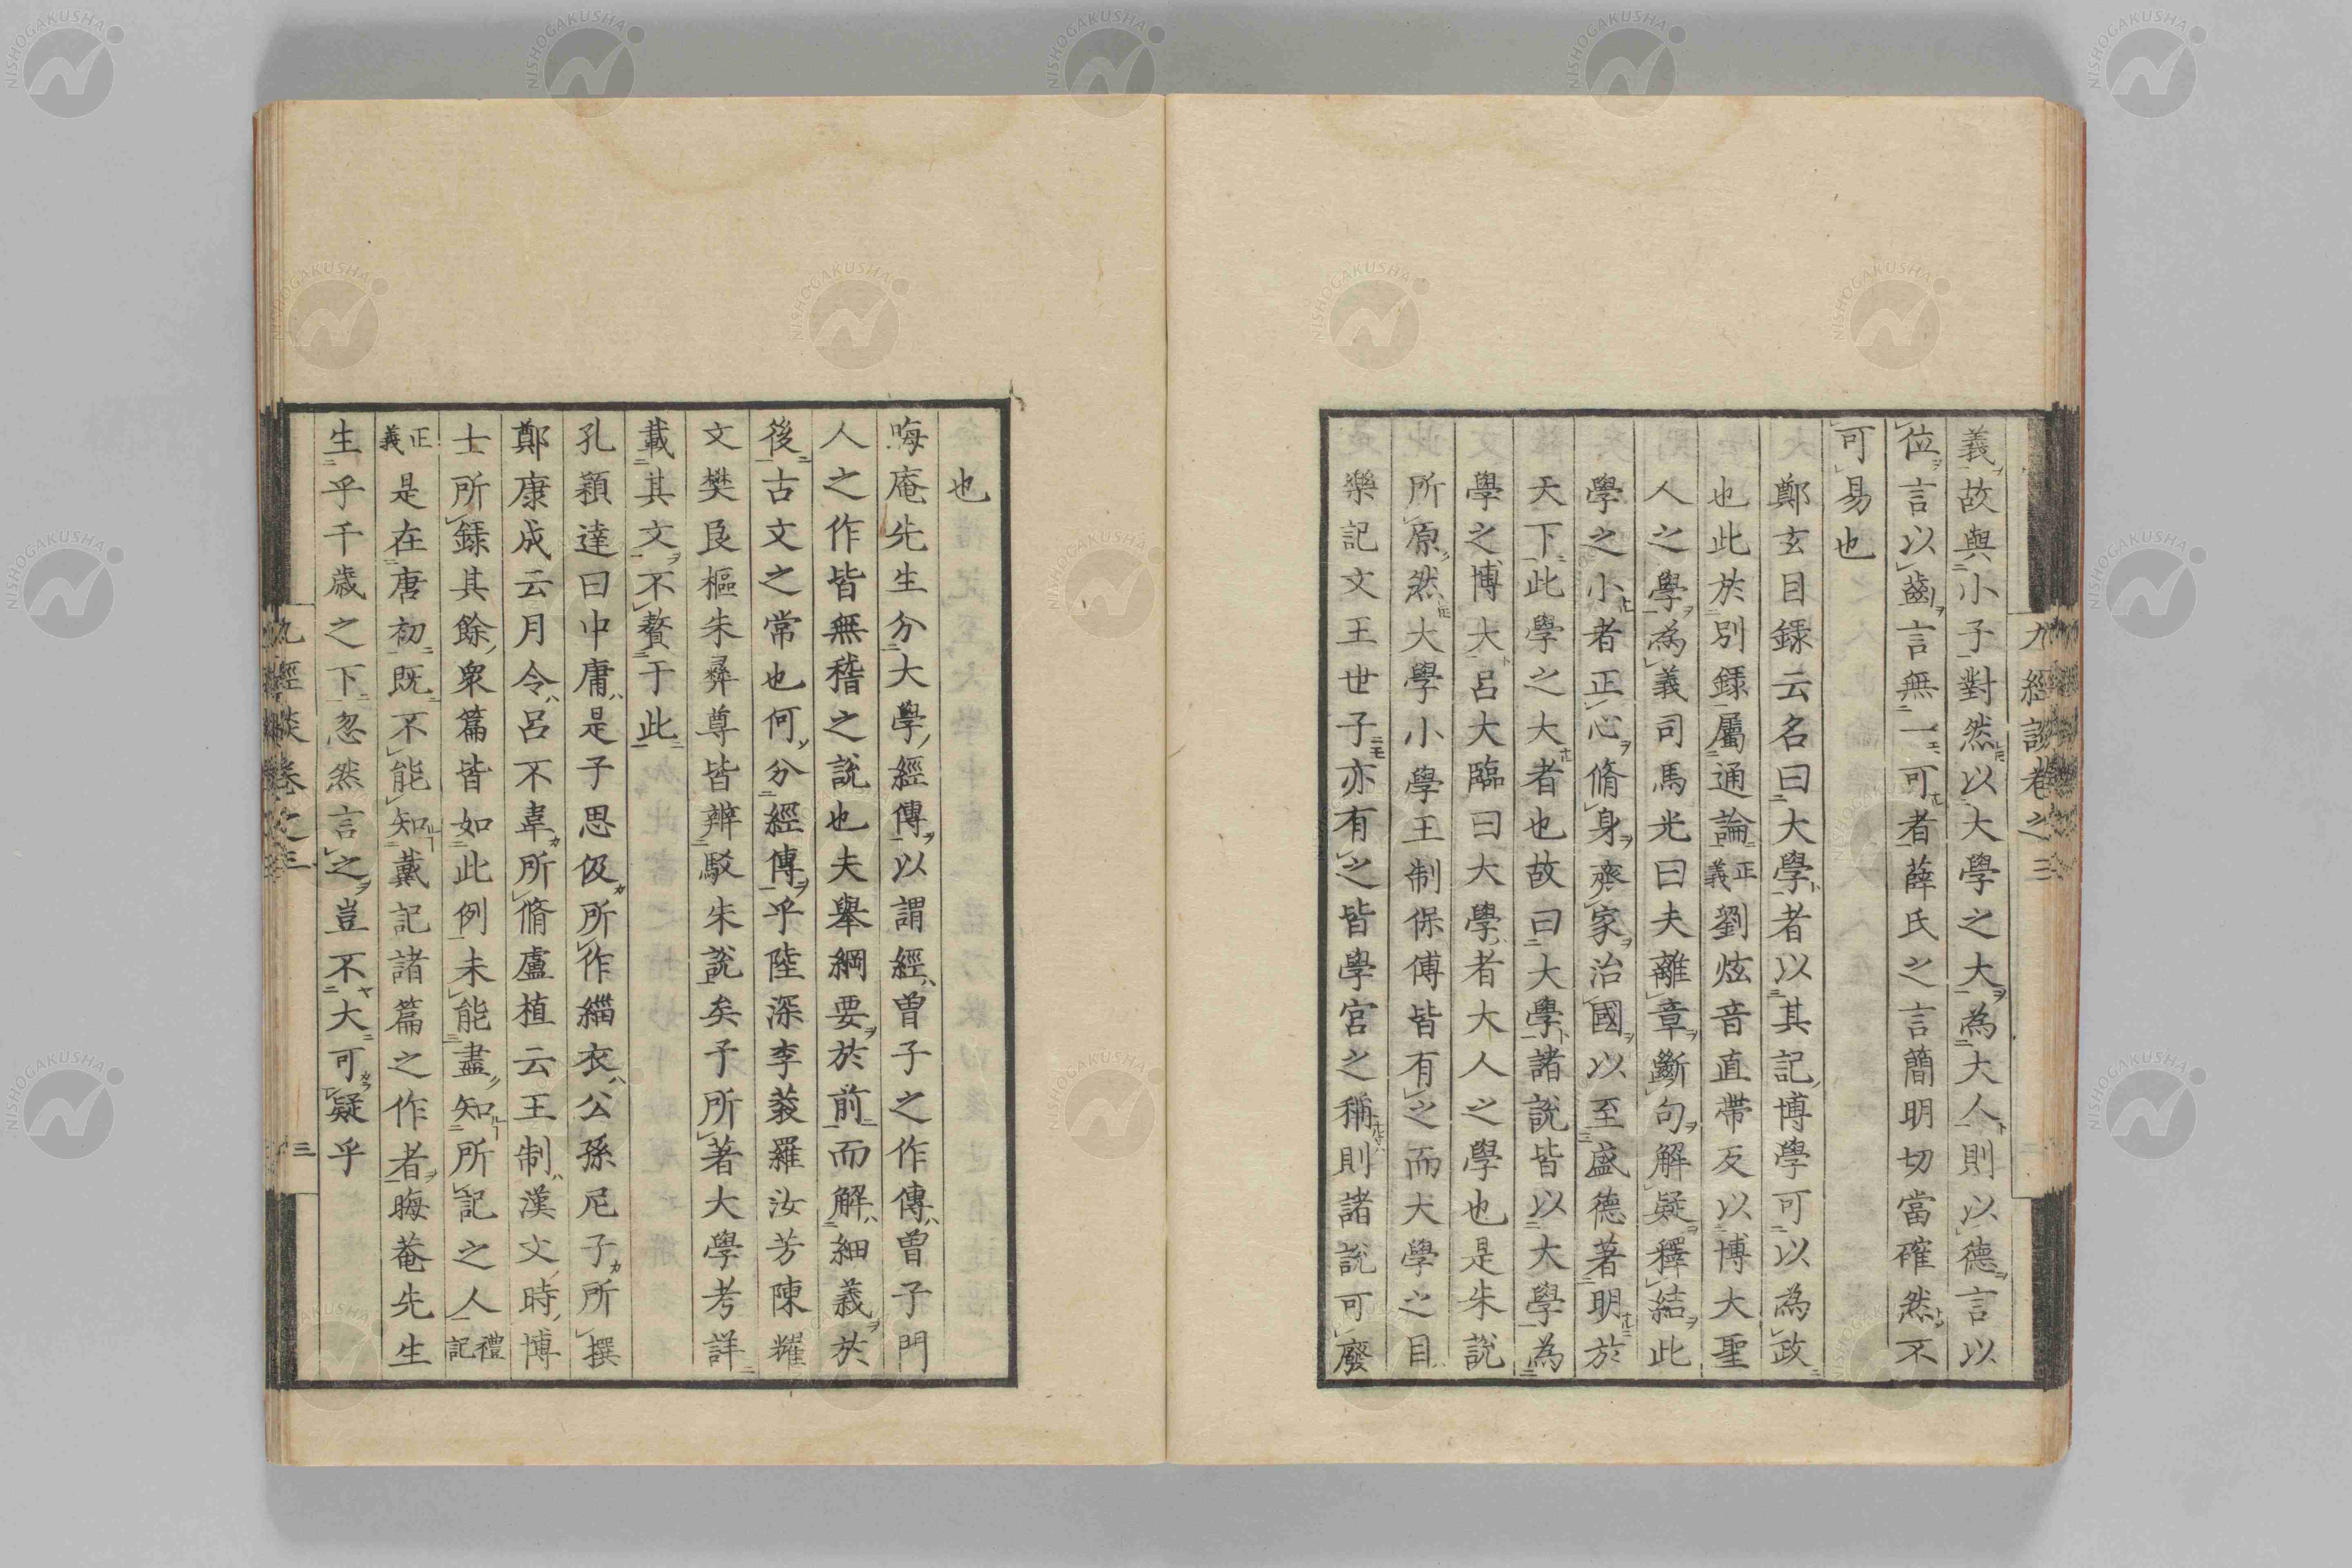 九經談卷之三
義故與小子對然以大學之大為大人則以德言以
位言以齒言無一可者薛氏之言簡明切當確然不
可易也
鄭玄目錄云名曰大學者以其記博學可以為政
也此於別錄屬通論正義劉炫音直帶反以博大聖
人之學為義司馬光曰夫離章斷句解疑釋結此
學之小者正心脩身齊家治國以至盛德著明於
天下此學之大者也故曰大學諸說皆以大學為
學之博大呂大臨曰大學者大人之學也是朱說
所原然大學小學王制保傅皆有之而大學之目
樂記文王世子亦有之皆學宮之稱則諸說可廢
也
晦庵先生分大學經傳以謂經曾子之作傳曾子門
人之作皆無稽之說也夫舉綱要於前而解細義於
後古文之常也何分經傳乎陸深李蔉羅汝芳陳耀
文樊良樞朱彝尊皆辨駁朱說矣予所著大學考詳
載其文不贅于此
孔穎達曰中庸是子思伋所作緇衣公孫尼子所撰
鄭康成云月令呂不韋所脩盧植云王制漢文時博
士所錄其餘衆篇皆如此例未能盡知所記之人禮記
正義是在唐初既不能知戴記諸篇之作者晦菴先生
生乎千歲之下忽然言之豈不大可疑乎
九經談卷之三
三
NISHOGAKUSHA